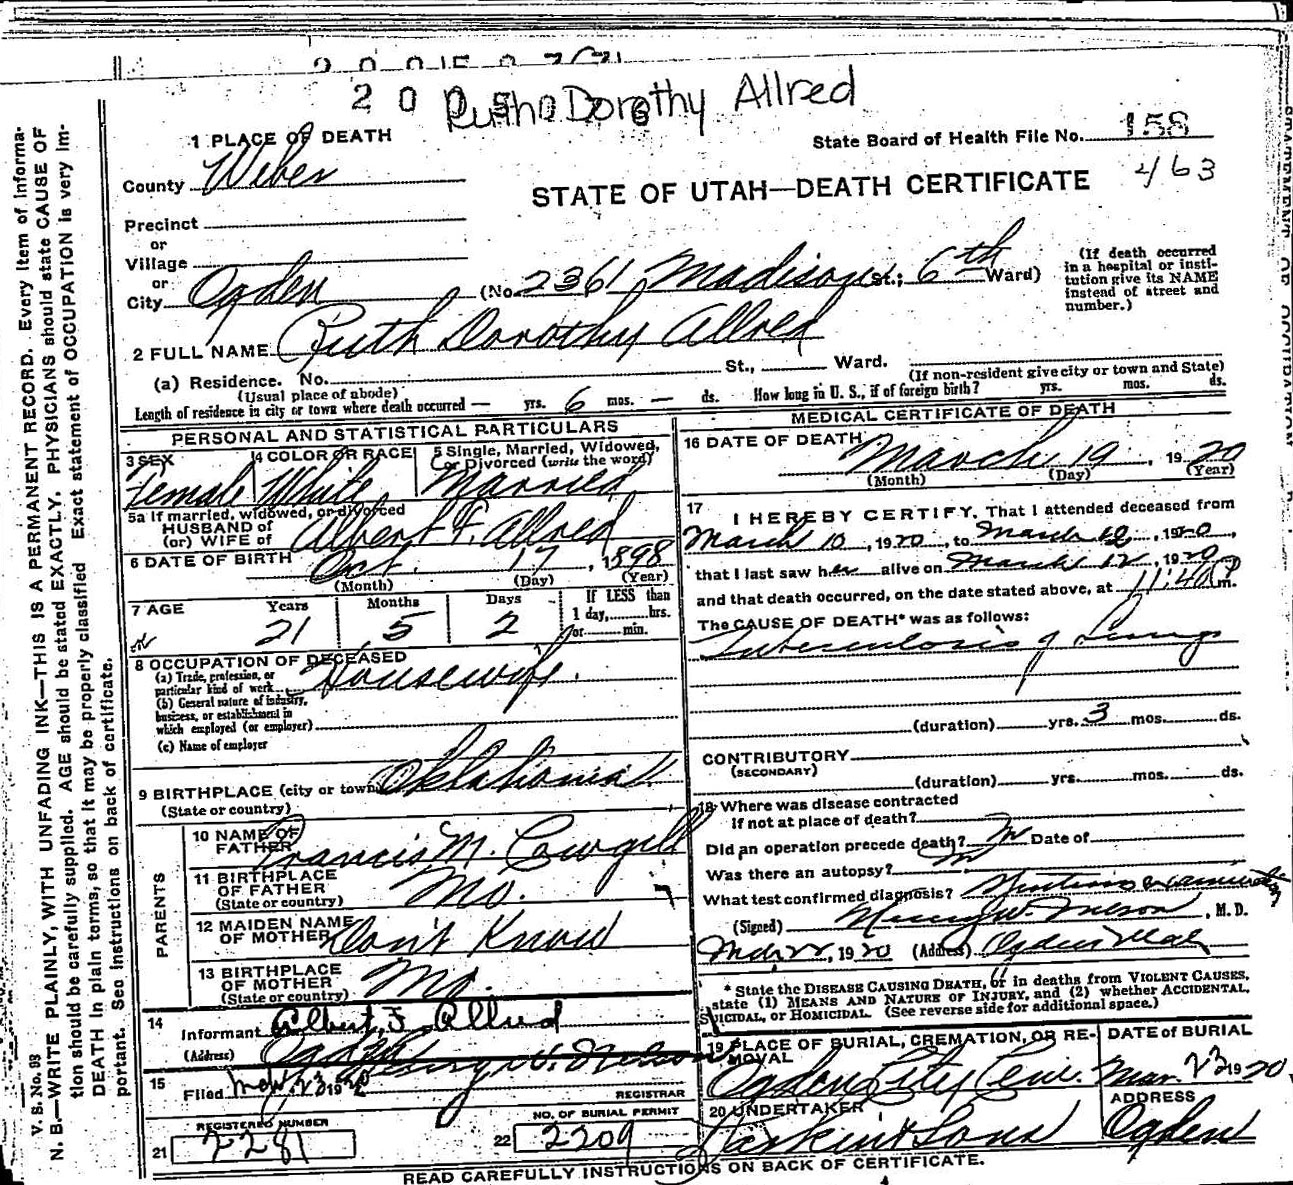 2 0 0 5 0 7 6
Ruth Dorothy Allred
1 PLACE OF DEATH
State Board of Health File No. 158
County Weber
463
STATE OF UTAH—DEATH CERTIFICATE
Precinct
or
Village
or
City Ogden (No. 2361 Madison St.; 6th Ward)
(If death occurred in a hospital or institution give its NAME instead of street and number.)
2 FULL NAME Ruth Dorothy Allred
(a) Residence. No. St., Ward.
(Usual place of abode) (If non-resident give city or town and State)
Length of residence in city or town where death occurred — yrs. 6 mos. — ds. How long in U. S., if of foreign birth? yrs. mos. ds.
PERSONAL AND STATISTICAL PARTICULARS
3 SEX Female
4 COLOR OR RACE White
5 Single, Married, Widowed, or Divorced (write the word) Married
5a If married, widowed, or divorced
HUSBAND of
(or) WIFE of Albert F. Allred
6 DATE OF BIRTH Oct. 17, 1898
(Month) (Day) (Year)
7 AGE Years 21 Months 5 Days 2
If LESS than
1 day, hrs.
or min.
8 OCCUPATION OF DECEASED
(a) Trade, profession, or
particular kind of work Housewife.
(b) General nature of industry,
business, or establishment in
which employed (or employer)
(c) Name of employer
9 BIRTHPLACE (city or town) Oklahoma
(State or country)
PARENTS
10 NAME OF
FATHER Francis M. Cowgill
11 BIRTHPLACE
OF FATHER
(State or country) Mo.
12 MAIDEN NAME
OF MOTHER Don't Know
13 BIRTHPLACE
OF MOTHER
(State or country) Mo.
14
Informant Albert F. Allred
(Address) Ogden
Henry W. Nelson
15
Filed Mar. 23 1920
REGISTRAR
REGISTERED NUMBER
21 2281
NO. OF BURIAL PERMIT
22 2209
MEDICAL CERTIFICATE OF DEATH
16 DATE OF DEATH March 19, 1920
(Month) (Day) (Year)
17 I HEREBY CERTIFY, That I attended deceased from
March 10, 1920, to March 12, 1920,
that I last saw her alive on March 12, 1920
and that death occurred, on the date stated above, at 11:40 P m.
The CAUSE OF DEATH* was as follows:
Tuberculosis of Lungs
(duration) yrs. 3 mos. ds.
CONTRIBUTORY
(SECONDARY)
(duration) yrs. mos. ds.
18 Where was disease contracted
if not at place of death?
Did an operation precede death? No Date of
Was there an autopsy? No
What test confirmed diagnosis?
(Signed) Henry W. Nelson, M. D.
Mar 22, 1920 (Address) Ogden Utah
* State the DISEASE CAUSING DEATH, or in deaths from VIOLENT CAUSES,
state (1) MEANS AND NATURE OF INJURY, and (2) whether ACCIDENTAL,
SUICIDAL, or HOMICIDAL. (See reverse side for additional space.)
19 PLACE OF BURIAL, CREMATION, OR RE-
MOVAL
Ogden City Cem.
DATE of BURIAL
Mar. 23 1920
20 UNDERTAKER
Larkin & Sons
ADDRESS
Ogden
READ CAREFULLY INSTRUCTIONS ON BACK OF CERTIFICATE.
V. S. No. 93
N. B.—WRITE PLAINLY, WITH UNFADING INK—THIS IS A PERMANENT RECORD. Every item of informa-
tion should be carefully supplied. AGE should be stated EXACTLY. PHYSICIANS should state CAUSE OF
DEATH in plain terms, so that it may be properly classified. Exact statement of OCCUPATION is very im-
portant. See instructions on back of certificate.
STATEMENT OF OCCUPATION